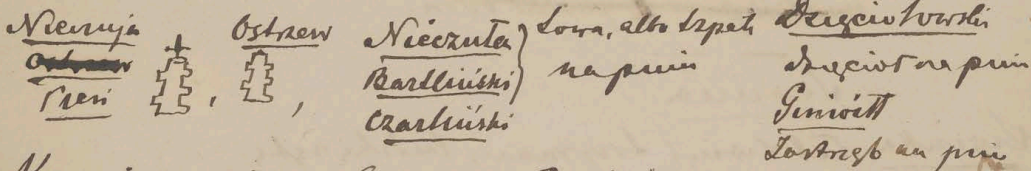 Nieczuja
Ostrzew
Pień
Ostrzew
Nieczuła
Bartliński
Czarliński
Sowa, albo Szpak
na pniu
Dzięciołowski
dzięcioł na pniu
Giniółł
Jastrząb na pniu